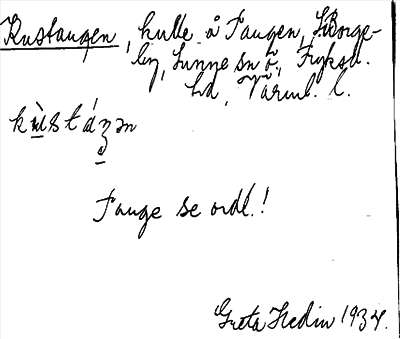 Kustangen, kulle å Tangen, St. Borge-
by, Sunne sn ö., Fryksd.
hd, Värml. l.
kùstáŋən
Tange se ordl.!
Greta Hedin 1934.